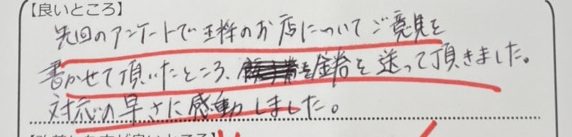 【良いところ】
先回のアンケートで王様のお店についてご意見を
書かせて頂いたところ、を送って頂きました。
対応の早さに感動しました。